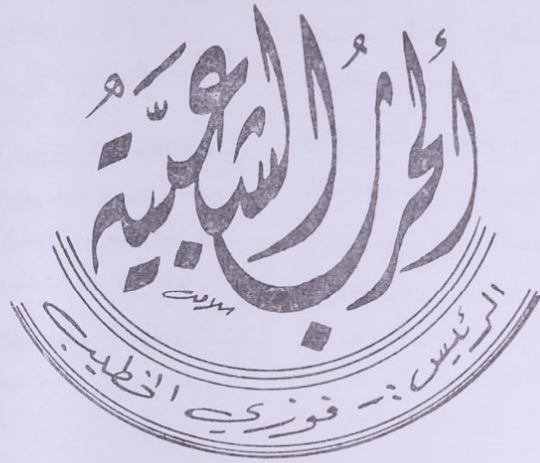 الحربُ الشاعبيَّةُ
الرئيس :- فوزي الخطيب